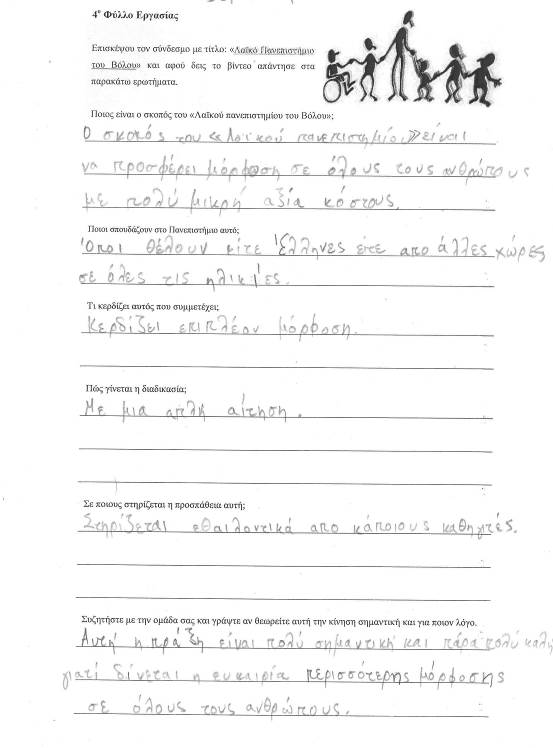 4ο Φύλλο Εργασίας
Επισκέψου τον σύνδεσμο με τίτλο: «Λαϊκό Πανεπιστήμιο
του Βόλου» και αφού δεις το βίντεο απάντησε στα
παρακάτω ερωτήματα.
Ποιος είναι ο σκοπός του «Λαϊκού πανεπιστημίου του Βόλου»;
Ο σκοπός του «Λαϊκού πανεπιστημίου» είναι
να προσφέρει μόρφωση σε όλους τους ανθρώπους
με πολύ μικρή αξία κόστους.
Ποιοι σπουδάζουν στο Πανεπιστήμιο αυτό;
Όποι θέλουν είτε Έλληνες είτε απο άλλες χώρες
σε όλες τις ηλικίες.
Τι κερδίζει αυτός που συμμετέχει;
Κερδίζει επιπλέον μόρφωση.
Πώς γίνεται η διαδικασία;
Με μια απλή αίτηση.
Σε ποιους στηρίζεται η προσπάθεια αυτή;
Στηρίζεται εθαιλοντικά απο κάποιους καθηγητές.
Συζητήστε με την ομάδα σας και γράψτε αν θεωρείτε αυτή την κίνηση σημαντική και για ποιον λόγο.
Αυτή η πράξη είναι πολύ σημαντική και πάρα πολύ καλή
γιατί δίνεται η ευκαιρία περισσότερης μόρφωσης
σε όλους τους ανθρώπους.